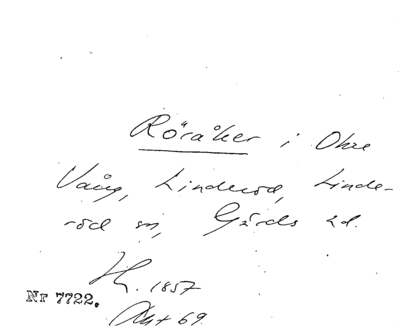 Röråker i Ohre
Vång, Linderöd, Linde-
röd sn, Gärds hd.
H. 1857
Nr 7722. Akt 69.